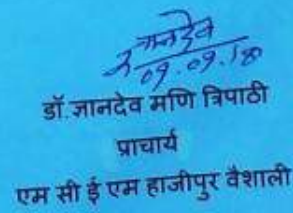 ज्ञानदेव
09.09.18
डॉ. ज्ञानदेव मणि त्रिपाठी
प्राचार्य
एम सी ई एम हाजीपुर वैशाली